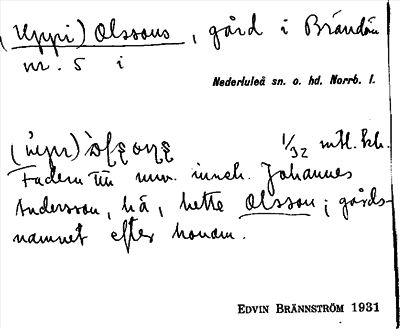 (Uppi) Olssons, gård i Brändön
nr. 5 i
Nederluleå sn. o. hd. Norrb. l.
1/32 mtl. kb.
Fadern till nuv. inneh. Johannes
Andersson, hä, hette Olsson; gårds-
namnet efter honom.
EDVIN BRÄNNSTRÖM 1931